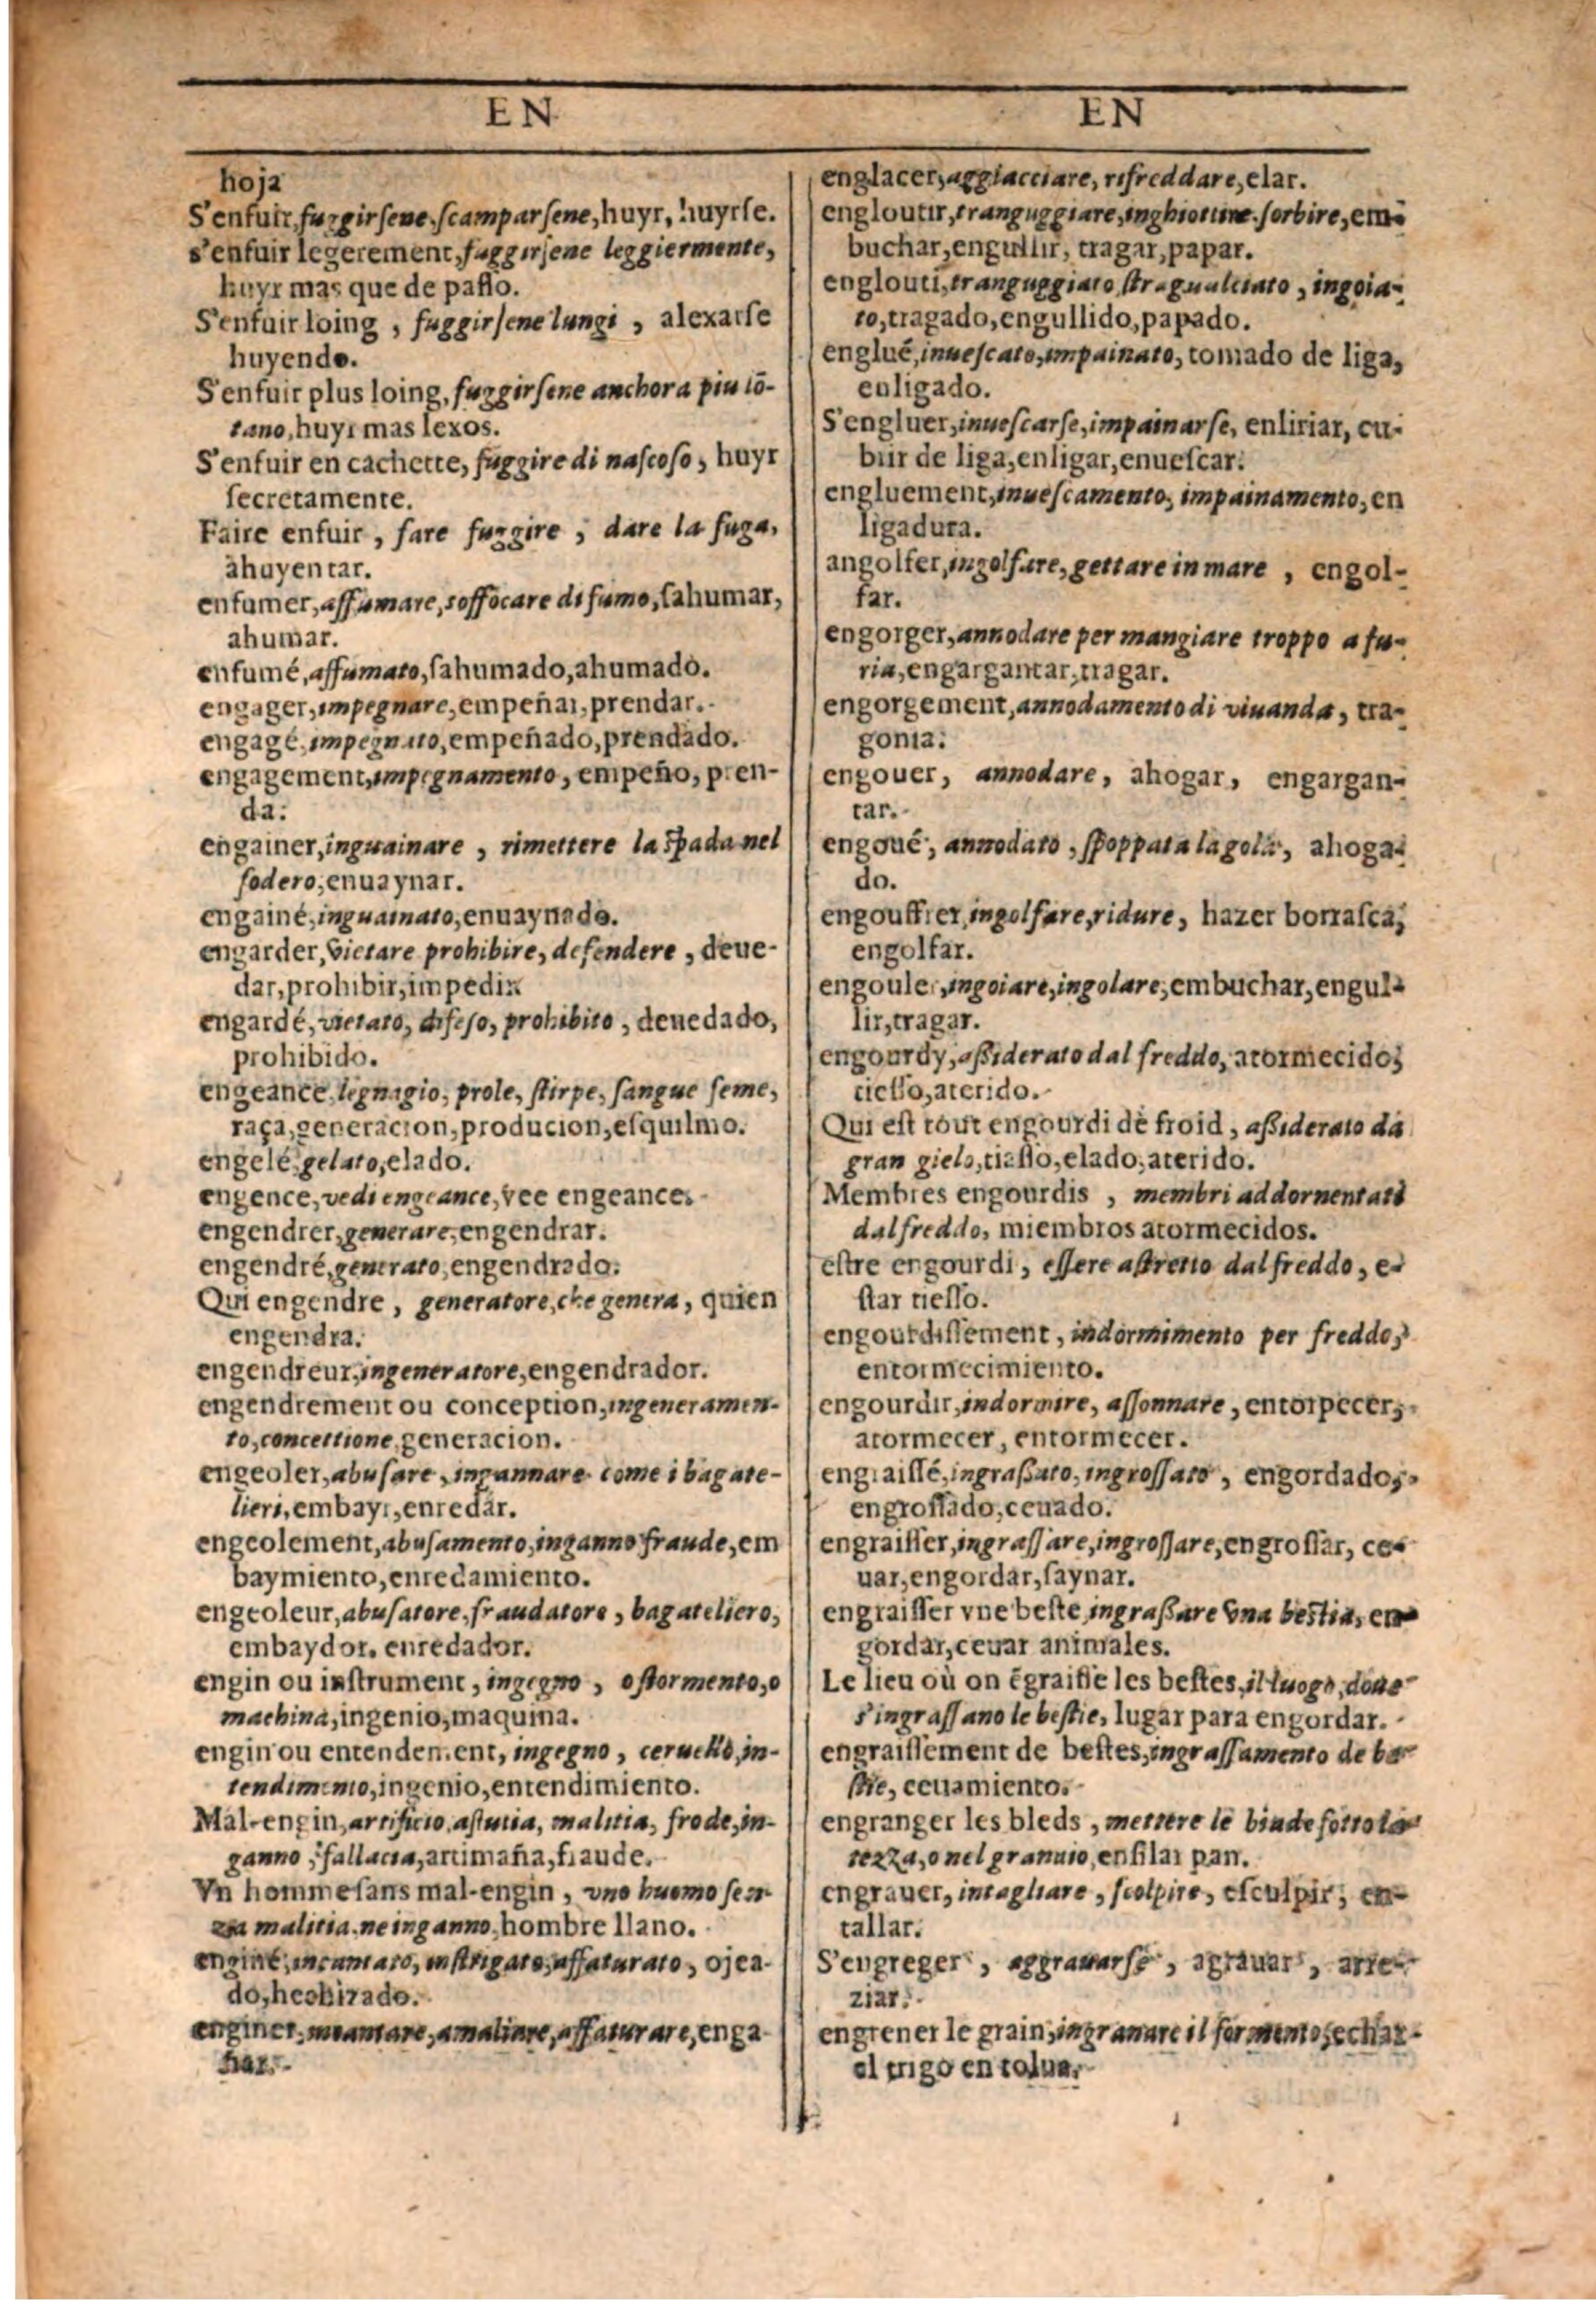 EN
hoja
S'enfuir, fuggirsene, scamparsene, huyr, huyrse.
s'enfuir legerement, fuggirsene leggiermente,
huyr mas que de passo.
S'enfuir loing, fuggirsene lungi, alexarse
huyendo.
S'enfuir plus loing, fuggirsene anchora piu lō-
tano, huyr mas lexos.
S'enfuir en cachette, fuggire di nascoso, huyr
secretamente.
Faire enfuir, fare fuggire, dare la fuga,
ahuyentar.
enfumer, affumare, soffocare di fumo, sahumar,
ahumar.
enfumé, affumato, sahumado, ahumado.
engager, impegnare, empeñar, prendar.
engagé, impegnato, empeñado, prendado.
engagement, impegnamento, empeño, pren-
da.
engainer, inguainare, rimettere la spada nel
fodero, enuaynar.
engainé, inguainato, enuaynado.
engarder, vietare prohibire, defendere, deue-
dar, prohibir, impedir
engardé, vietato, difeso, prohibito, deuedado,
prohibido.
engeance, legnagio, prole, stirpe, sangue seme,
raça, generacion, producion, esquilmo.
engelé, gelato, elado.
engence, vedi engeance, vee engeance.
engendrer, generare, engendrar.
engendré, generato, engendrado.
Qui engendre, generatore, che genera, quien
engendra.
engendreur, ingeneratore, engendrador.
engendrement ou conception, ingeneramen-
to, concettione, generacion.
engeoler, abusare, ingannare come i bagate-
lieri, embayr, enredar.
engeolement, abusamento, inganno fraude, em
baymiento, enredamiento.
engeoleur, abusatore, fraudatore, bagateliero,
embaydor, enredador.
engin ou instrument, ingegno, o stormento, o
machina, ingenio, maquina.
engin ou entendement, ingegno, ceruello, in-
tendimento, ingenio, entendimiento.
Mal-engin, artificio, astutia, malitia, frode, in-
ganno, fallacia, artimaña, fraude.
Vn homme sans mal-engin, vno huomo sen-
za malitia, ne inganno, hombre llano.
enginé, incantato, instrigato, affaturato, ojea-
do, hechizado.
enginer, incantare, amaliare, affaturare, enga-
ñar.
EN
englacer, aggiacciare, rifreddare, elar.
engloutir, tranguggiare, inghiottire sorbire, em-
buchar, engullir, tragar, papar.
englouti, tranguggiato, stragualciato, ingoia-
to, tragado, engullido, papado.
englué, inuescato, impainato, tomado de liga,
enligado.
S'engluer, inuescarse, impainarse, enliriar, cu-
brir de liga, enligar, enuescar.
engluement, inuescamento, impainamento, en
ligadura.
angolfer, ingolfare, gettare in mare, engol-
far.
engorger, annodare per mangiare troppo a fu-
ria, engargantar, tragar.
engorgement, annodamento di viuanda, tra-
gonia.
engouer, annodare, ahogar, engargan-
tar.
engoué, annodato, stoppata la gola, ahoga-
do.
engouffrer, ingolfare, ridure, hazer borrasca,
engolfar.
engouler, ingoiare, ingolare, embuchar, engul-
lir, tragar.
engourdy, assiderato dal freddo, atormecido,
tiesso, aterido.
Qui est tout engourdi de froid, assiderato da
gran gielo, tiesso, elado, aterido.
Membres engourdis, membri addornentati
dal freddo, miembros atormecidos.
estre engourdi, essere astretto dal freddo, e-
star tiesso.
engourdissement, indormimento per freddo,
entormecimiento.
engourdir, indormire, assonnare, entorpecer,
atormecer, entormecer.
engraissé, ingrassato, ingrossato, engordado,
engrossado, ceuado.
engraisser, ingrassare, ingrossare, engrossar, ce-
uar, engordar, saynar.
engraisser vne beste, ingrassare vna bestia, en-
gordar, ceuar animales.
Le lieu où on ēgraisse les bestes, il luogo, doue
s'ingrassano le bestie, lugar para engordar.
engraissement de bestes, ingrassamento de be-
stie, ceuamiento.
engranger les bleds, mettere le biade sotto la
tezza, o nel granaio, ensilar pan.
engrauer, intagliare, scolpire, esculpir, en-
tallar.
S'engreger, aggrauarse, agrauar, arre-
ziar.
engrener le grain, ingranare il formento, echar
el trigo en tolua.